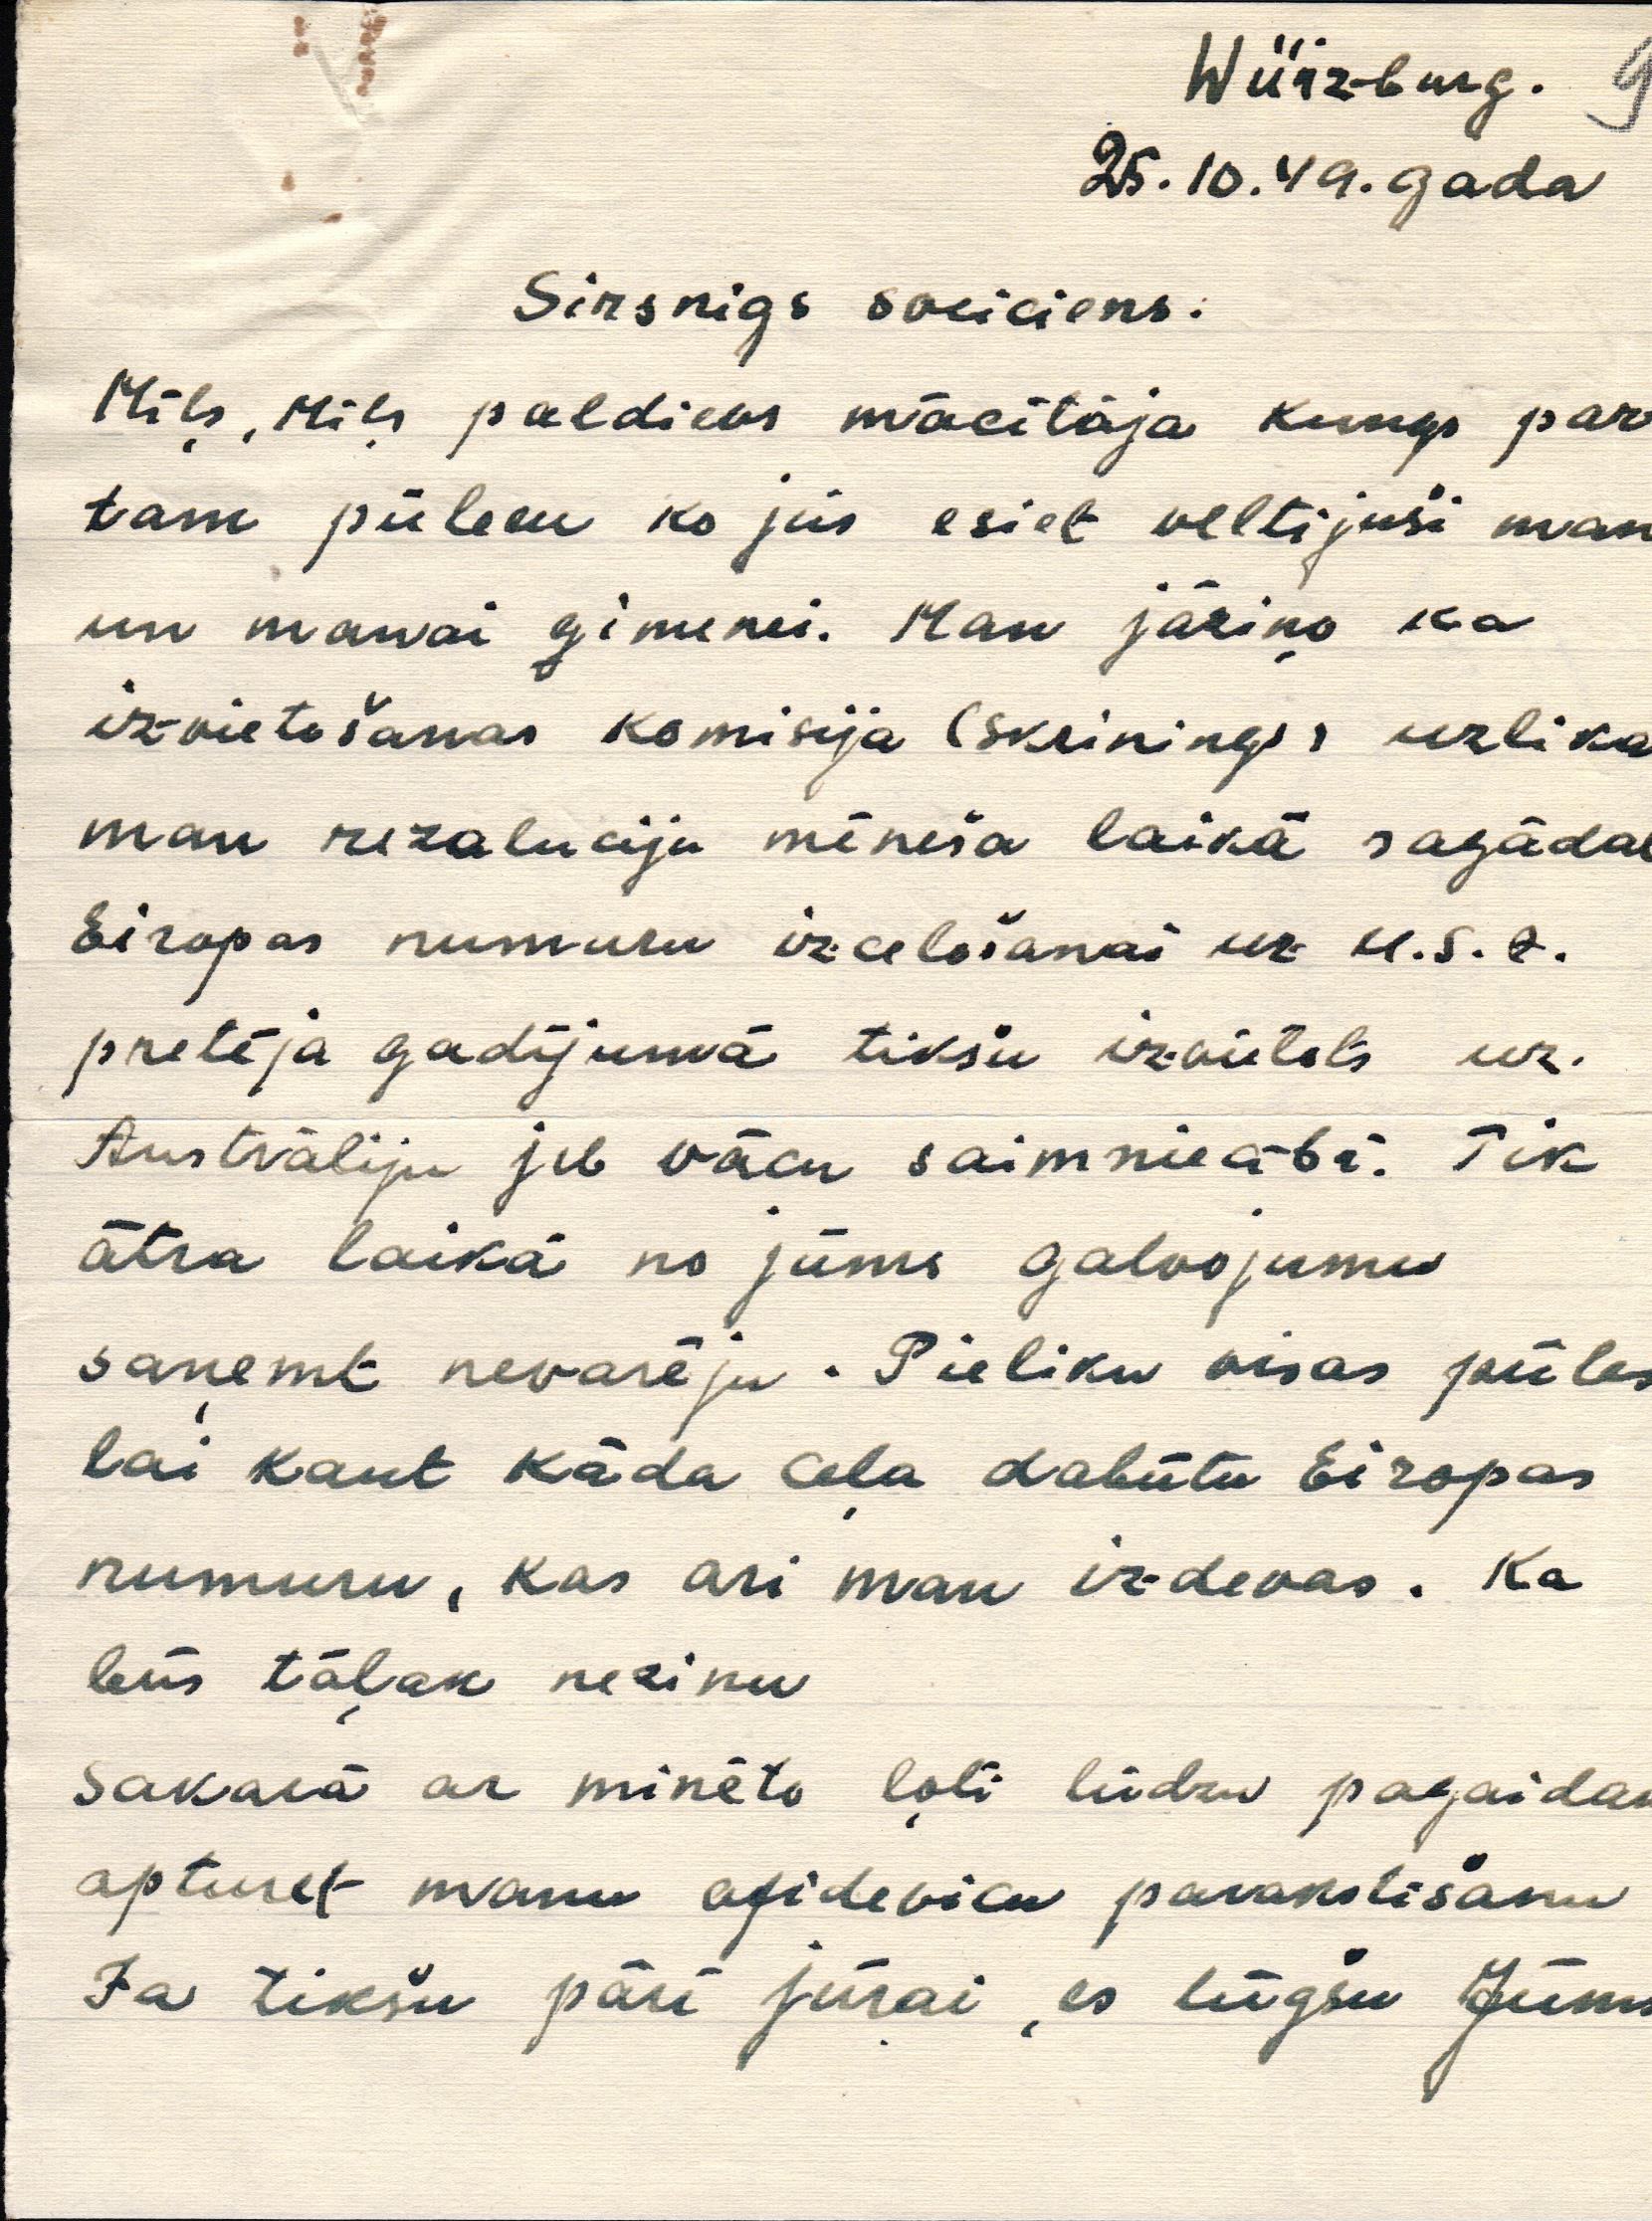 Würzburg. 9
25.10.49. gada
Sirsnigs sveiciens.
Mīļs, Mīļs paldievs mācītāja kungs par
tam pūlem ko jūs esiet veltijuši man
un manai gimenei. Man jāziņo ka
izvietošanas komisija (Skrinings) uzlika
man rezaluciju mēneša laikā sagādat
Eiropas numuru izcelošanai uz U.S.A.
pretēja gadījumā tikšu izvietots uz.
Austrāliju jeb vācu saimniecibā. Tik
ātra laikā no jūms galvojumu
saņemt nevarēju. Pieliku visas pūles
lai kaut kāda ceļa dabūtu Eiropas
numuru, kas ari man izdevas. Ka
būs tāļak nezinu
sakarā ar minēto ļoti lūdzu pagaidam
apturet manu afidevicu parakstišanu
Ja tikšu pāri jūrai, es lūgšu Jūms